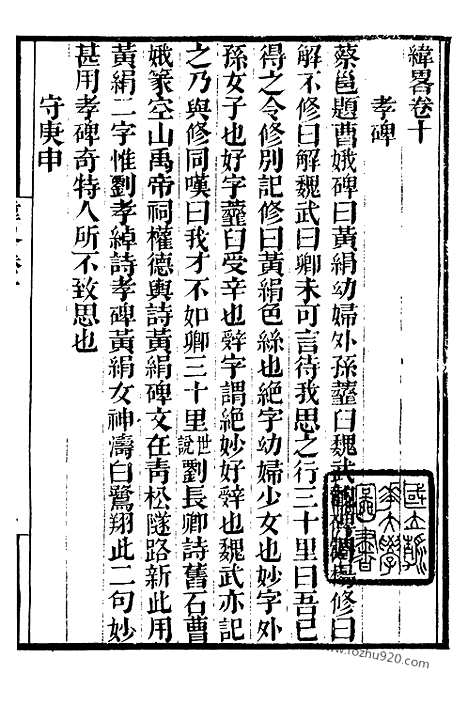 緯畧卷十
孝碑
蔡邕題曹娥碑曰黃絹幼婦外孫虀臼魏武
楊修曰
解不修曰解魏武曰卿未可言待我思之行三十里曰吾已
得之令修別記修曰黃絹色絲也絕字幼婦少女也妙字外
孫女子也好字虀臼受辛也辤字謂絕妙好辤也魏武亦記
之乃與修同嘆曰我才不如卿三十里世說劉長卿詩舊石曹
娥篆空山禹帝祠權德輿詩黃絹碑文在靑松隧路新此用
黃絹二字惟劉孝綽詩孝碑黃絹女神濤白鷺翔此二句妙
甚用孝碑奇特人所不致思也
守庚申
國立
大學
圖書
www.fozhu920.com